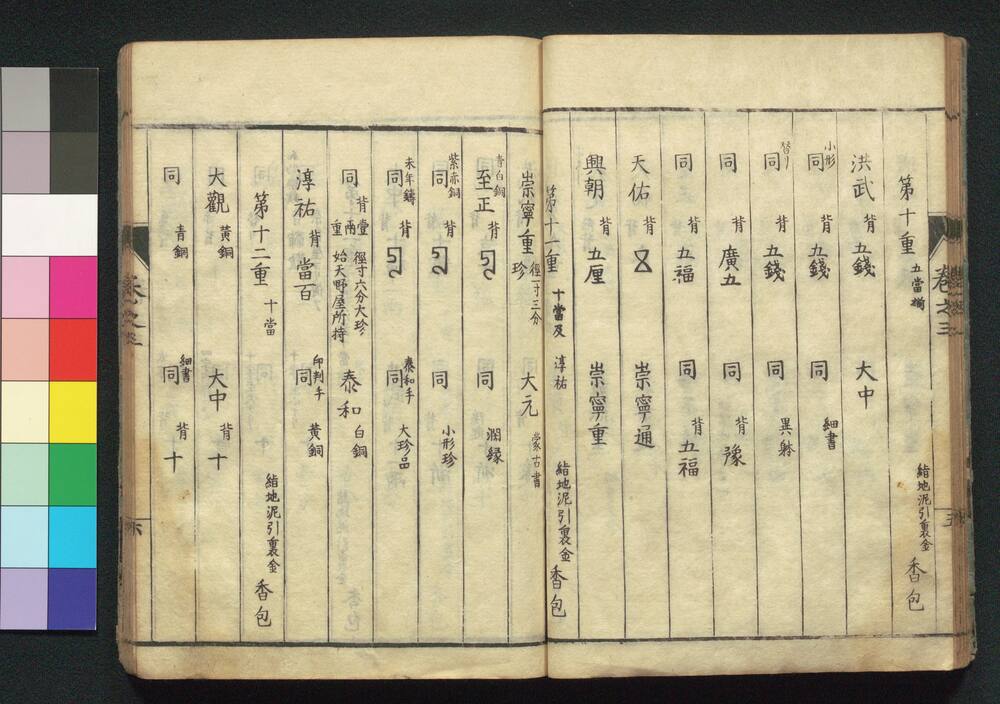 第十重 五當揃 緒地泥引裏金 香包
洪武 背五錢 大中
小形 同 背五錢 同 細書
替り 同 背五錢 同 異躰
同 背廣五 同 背豫
同 背五福 同 背五福
天佑 背 崇寧通
興朝 背五厘 崇寧重
第十一重 十當及 淳祐 緒地泥引裏金 香包
崇寧重 徑一寸三分 珍 大元 蒙古書
青白銅 至正 背 同 濶縁
紫赤銅 同 背 同 小形珍
未年鑄 同 背 同 泰和手 大珍品
同 背壹兩重 徑寸六分大珍 始天野屋所持 泰和 白銅
淳祐 背當百 同 印判手 黄銅
第十二重 十當 緒地泥引裏金 香包
大觀 黄銅 大中 背十
同 青銅 同 細書 背十
卷之三
五
卷之三
六